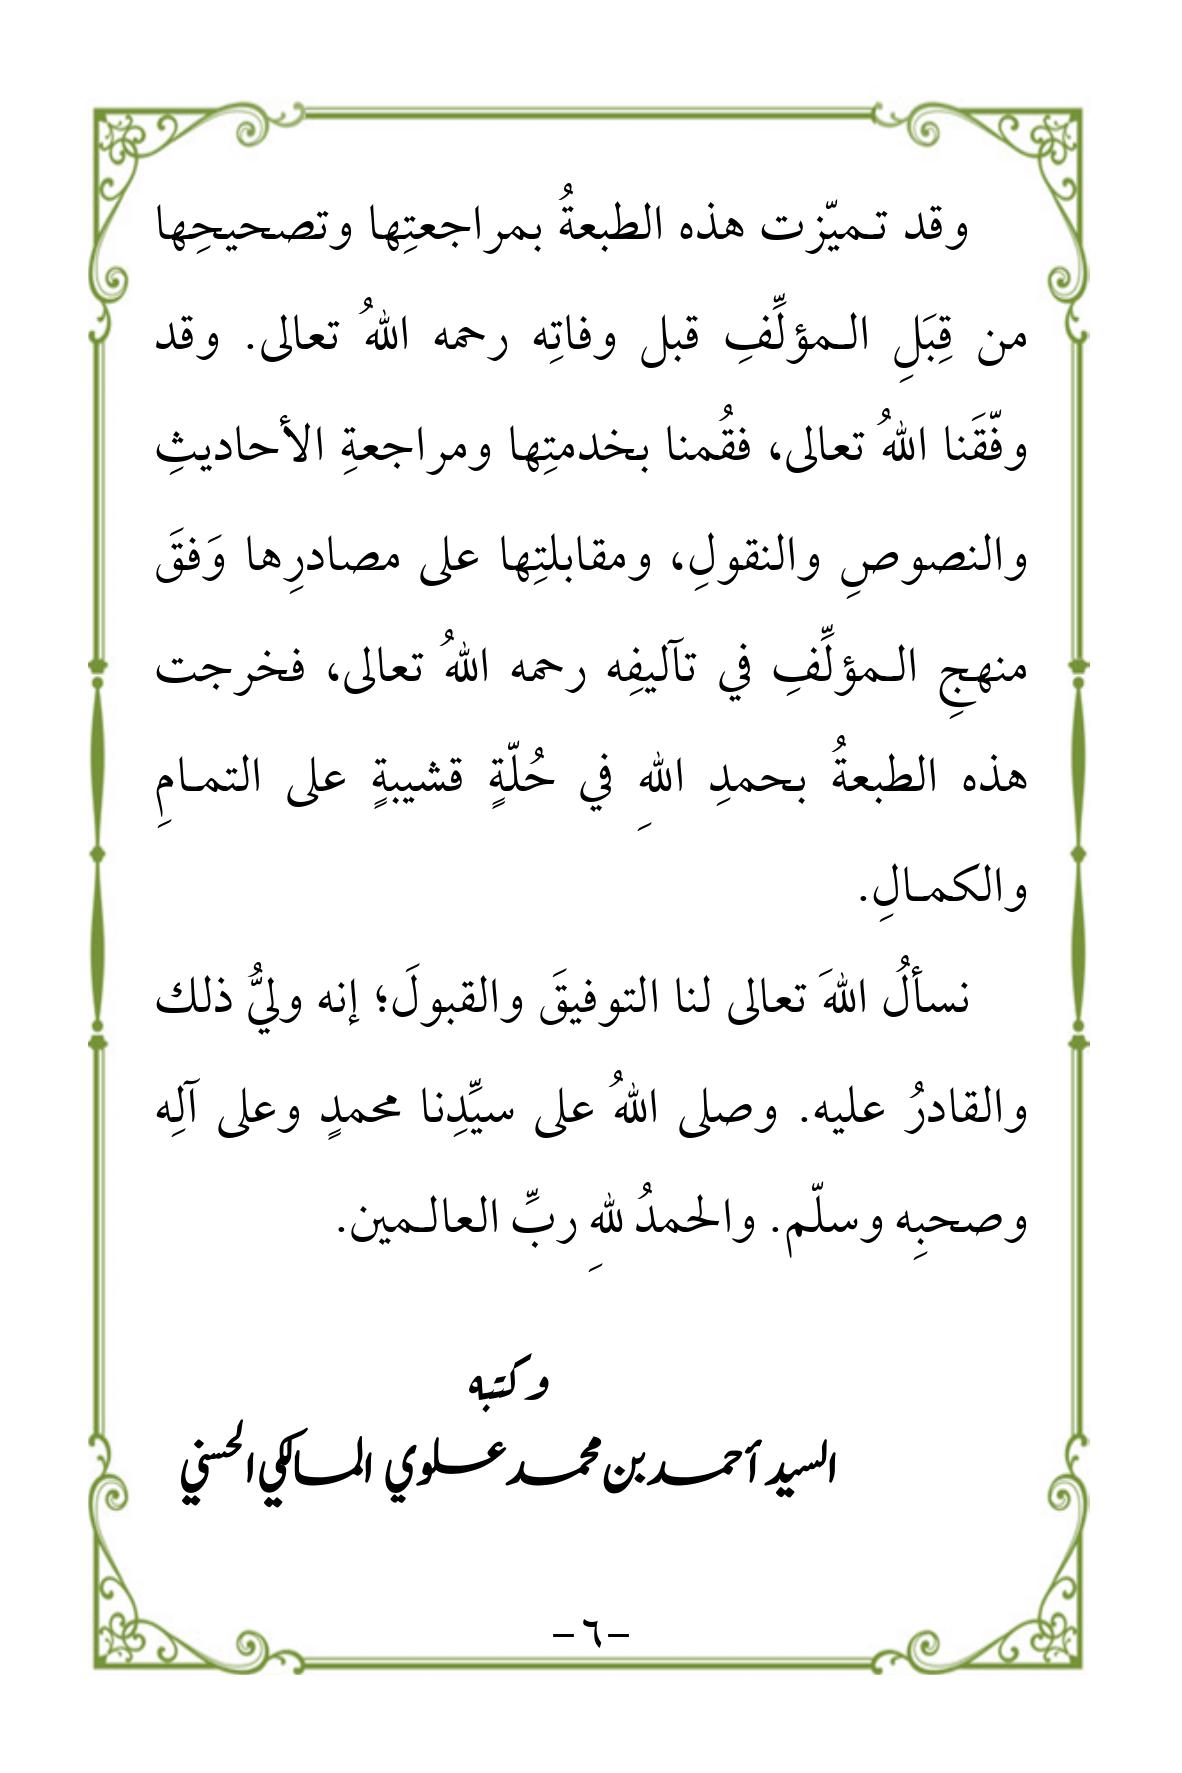 وقد تـميّزت هذه الطبعةُ بمراجعتِها وتصحيحِها
من قِبَلِ الـمؤلِّفِ قبل وفاتِه رحمه اللهُ تعالى. وقد
وفّقَنا اللهُ تعالى، فقُمنا بخدمتِها ومراجعةِ الأحاديثِ
والنصوصِ والنقولِ، ومقابلتِها على مصادرِها وَفقَ
منهجِ الـمؤلِّفِ في تآليفِه رحمه اللهُ تعالى، فخرجت
هذه الطبعةُ بحمدِ اللهِ في حُلّةٍ قشيبةٍ على التمـامِ
والكمـالِ.
نسألُ اللهَ تعالى لنا التوفيقَ والقبولَ؛ إنه وليُّ ذلك
والقادرُ عليه. وصلى اللهُ على سيِّدِنا محمدٍ وعلى آلِه
وصحبِه وسلّم. والحمدُ للهِ ربِّ العالـمين.
وكتبه
السيد أحمـد بن محمـد عـلوي المـالكي الحسني
– ٦ –